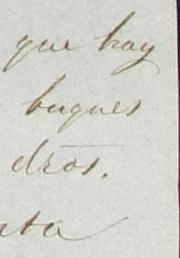 que hay
buques
dros.
nta